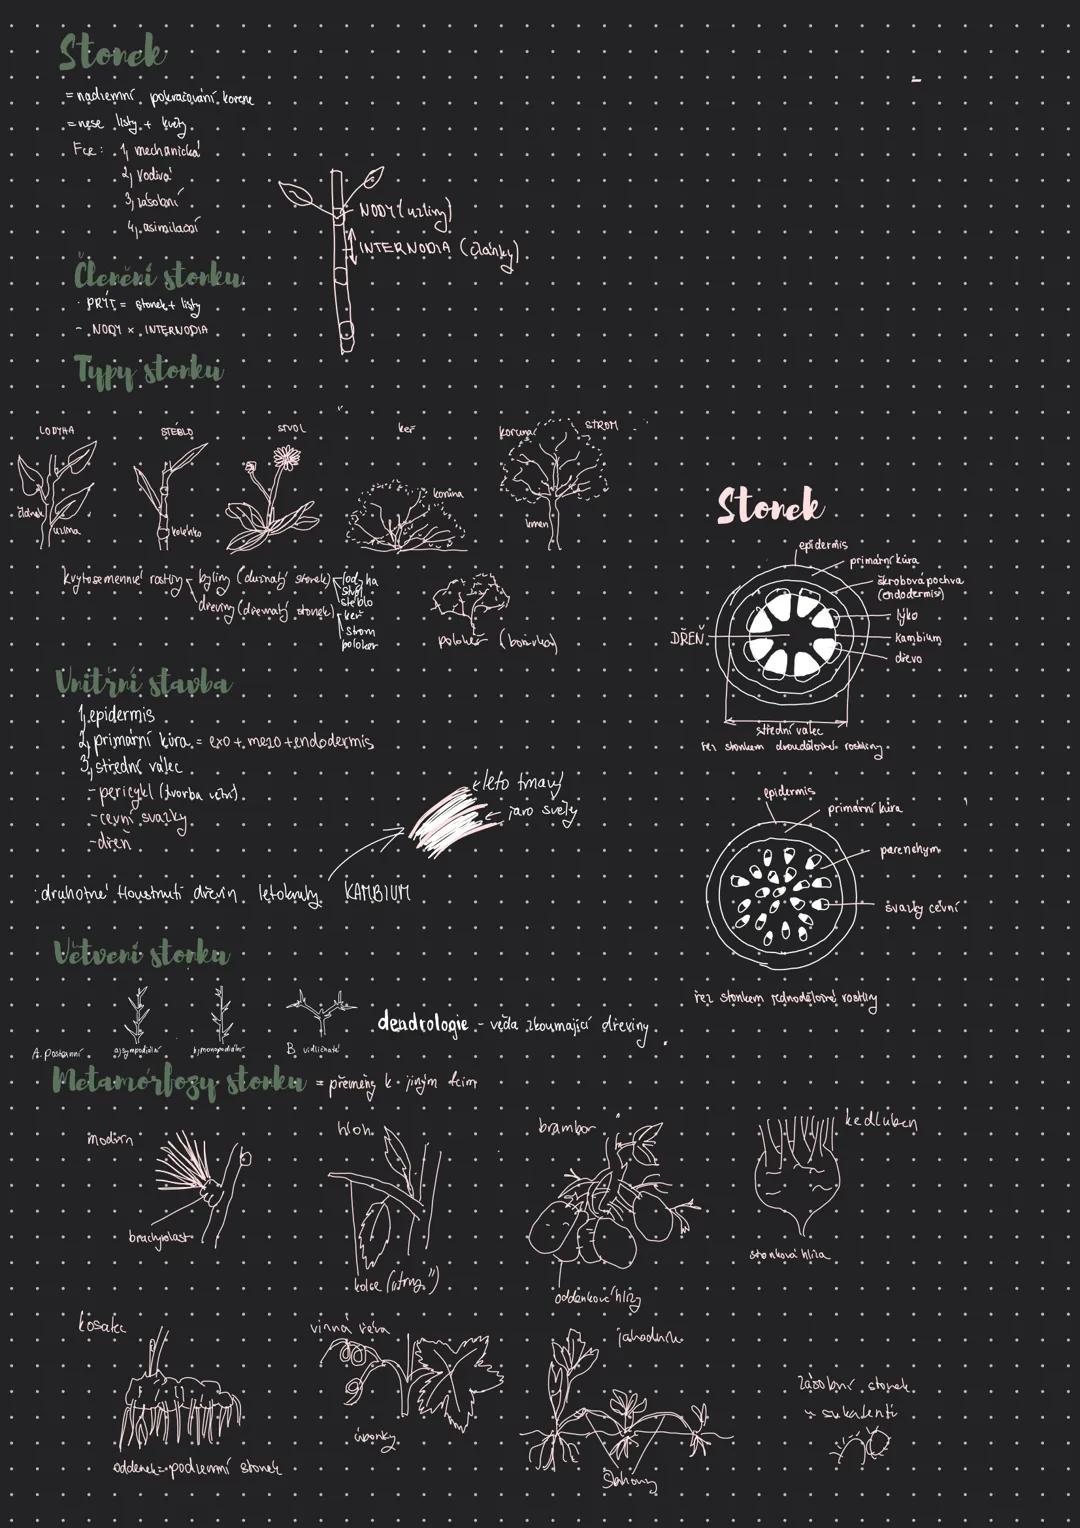 Stonek
= nadzemní pokračování kořene
= nese listy + květy
Fce: 1, mechanická
2, vodivá
3, zásobní
4, asimilační
NODY (uzliny)
INTERNODIA (články)
Členění stonku
· PRÝT = stonek + listy
- NODY x INTERNODIA
Typy stonku
LODYHA
STÉBLO
STVOL
keř
koruna
STROM
článek
uzlina
kolénko
koruna
kmen
kvytosemenné rostliny
byliny (dužnatý stonek)
lodyha
stvol
stéblo
dřeviny (dřevnatý stonek)
keř
strom
polokeř
polokeř (borůvka)
Stonek
epidermis
primární kůra
škrobová pochva
(endodermis)
lýko
kambium
dřevo
DŘEŇ
střední válec
řez stonkem dvouděložné rostliny
Vnitřní stavba
1, epidermis
2, primární kůra = exo + mezo + endodermis
3, střední válec
- pericykl (tvorba větví)
- cevní svazky
- dřeň
léto tmavý
jaro světlý
· druhotné tloustnutí dřevin letokruhy KAMBIUM
epidermis
primární kůra
parenchym
svazky cévní
řez stonkem jednoděložné rostliny
Větvení stonku
A. Postranní
a, sympodiální
b, monopodiální
B vidličnaté
dendrologie - věda zkoumající dřeviny
Metamorfozy stonku = přeměny k jiným fcím
modřín
brachyblast
hloh
kolce ("trny")
brambor
oddenkové hlízy
kedluben
stonková hlíza
kosatec
oddenek = podzemní stonek
vinná réva
úponky
jahodník
šlahouny
zásobní stonek
u sukulentů